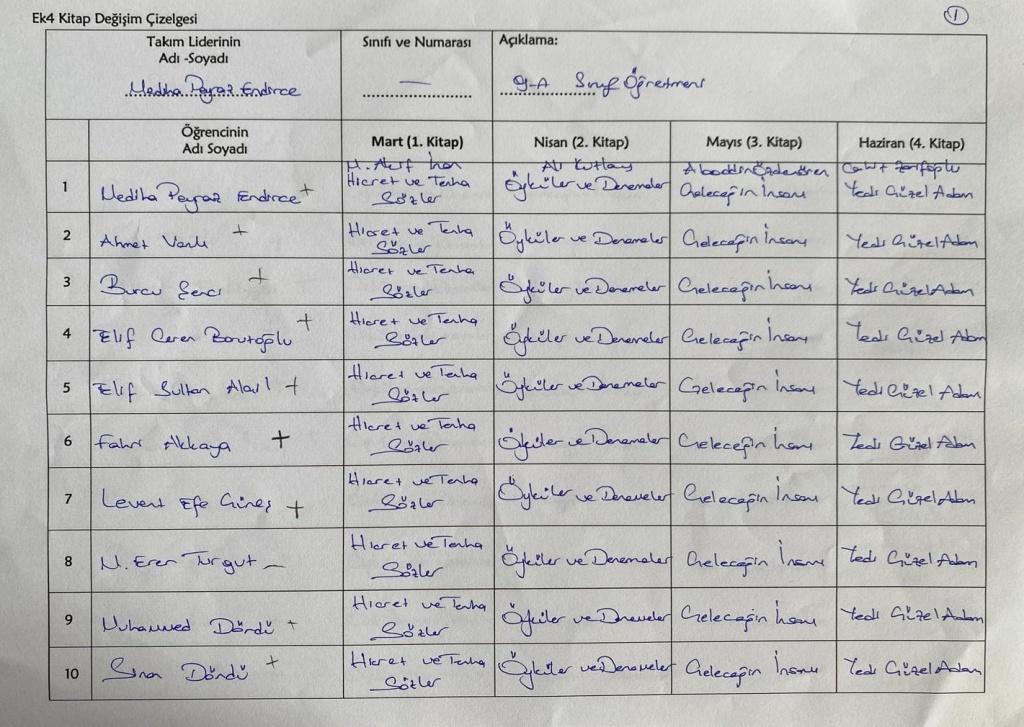 Ek4 Kitap Değişim Çizelgesi
1
Takım Liderinin
Adı -Soyadı
Mediha Poyraz Endirce
Sınıfı ve Numarası
—
Açıklama:
9-A Sınıf Öğretmeni
Öğrencinin
Adı Soyadı
Mart (1. Kitap)
Nisan (2. Kitap)
Mayıs (3. Kitap)
Haziran (4. Kitap)
1
Mediha Poyraz Endirce +
M. Akif İnan
Hicret ve Tenha
Sözler
Ali Kutlay
Öyküler ve Denemeler
Alaaddin Özdenören
Geleceğin İnsanı
Cahit Zarifoğlu
Yedi Güzel Adam
2
Ahmet Vanlı +
Hicret ve Tenha
Sözler
Öyküler ve Denemeler
Geleceğin İnsanı
Yedi Güzel Adam
3
Burcu Şenci +
Hicret ve Tenha
Sözler
Öyküler ve Denemeler
Geleceğin İnsanı
Yedi Güzel Adam
4
Elif Ceren Borutoğlu +
Hicret ve Tenha
Sözler
Öyküler ve Denemeler
Geleceğin İnsanı
Yedi Güzel Adam
5
Elif Sultan +
Hicret ve Tenha
Sözler
Öyküler ve Denemeler
Geleceğin İnsanı
Yedi Güzel Adam
6
Fahri Akkaya +
Hicret ve Tenha
Sözler
Öyküler ve Denemeler
Geleceğin İnsanı
Yedi Güzel Adam
7
Levent Efe Güneş +
Hicret ve Tenha
Sözler
Öyküler ve Denemeler
Geleceğin İnsanı
Yedi Güzel Adam
8
M. Eren Turgut –
Hicret ve Tenha
Sözler
Öyküler ve Denemeler
Geleceğin İnsanı
Yedi Güzel Adam
9
Muhammed Döndü +
Hicret ve Tenha
Sözler
Öyküler ve Denemeler
Geleceğin İnsanı
Yedi Güzel Adam
10
Sinan Döndü +
Hicret ve Tenha
Sözler
Öyküler ve Denemeler
Geleceğin İnsanı
Yedi Güzel Adam